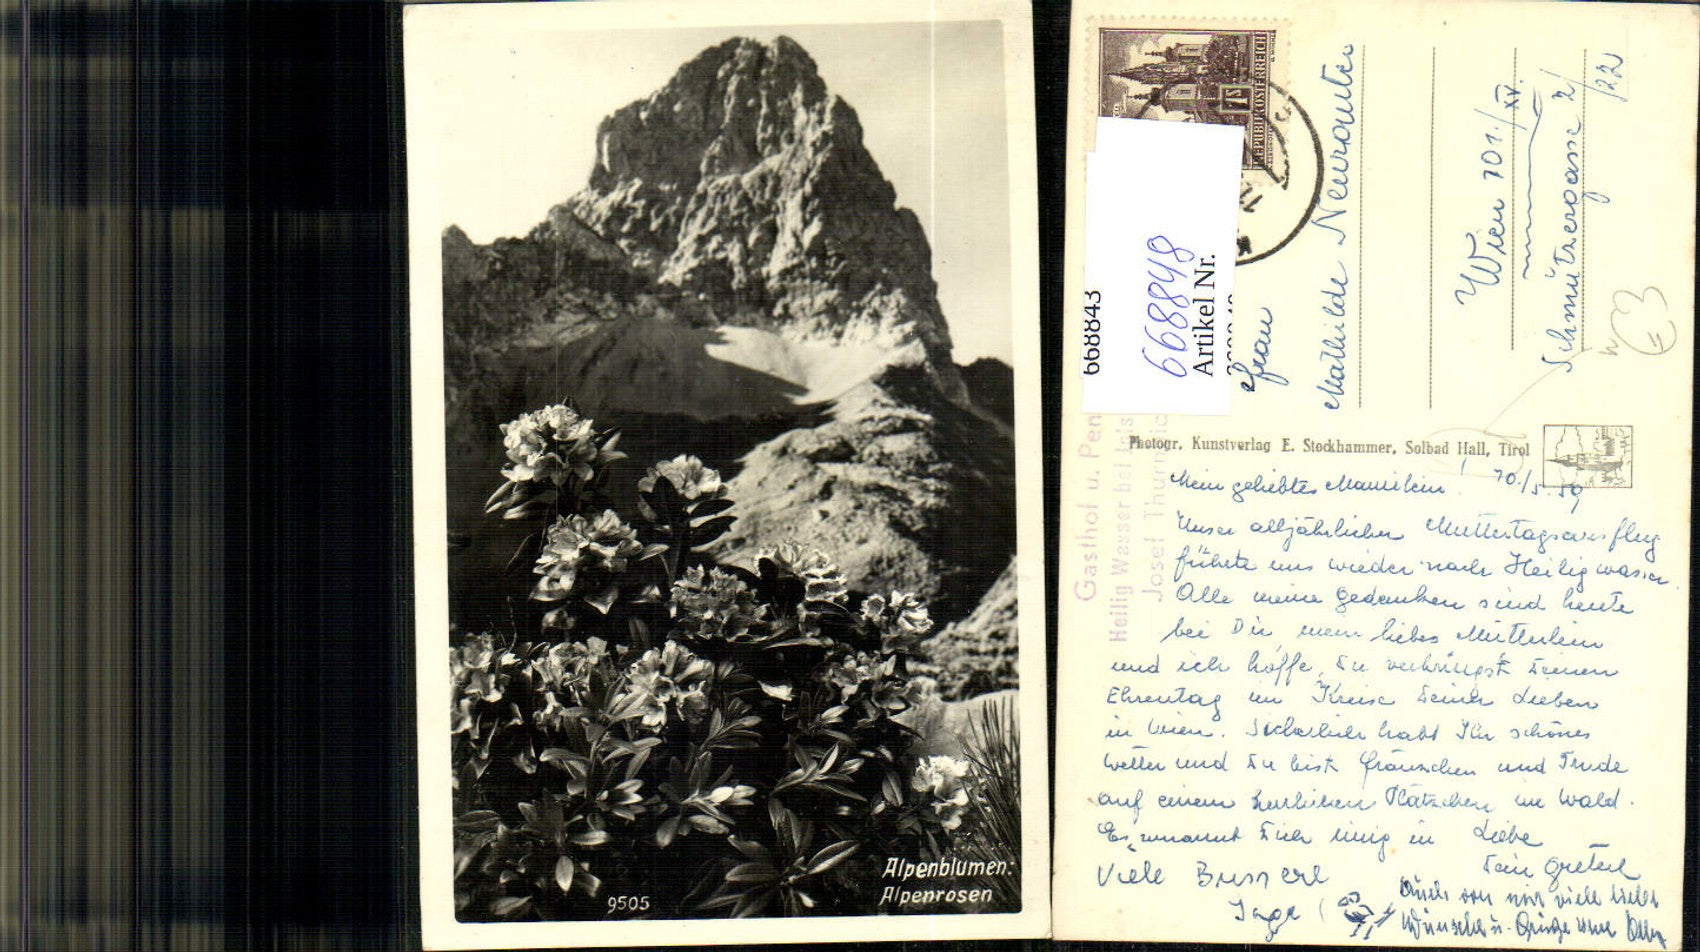 Alpenblumen:
Alpenrosen
9505
REPUBLIK ÖSTERREICH
668843
668848
Artikel Nr.
Frau
Mathilde Neurauter
Wien 101/XV.
Schmützergasse 2/
/22
Photogr. Kunstverlag E. Stockhammer, Solbad Hall, Tirol
Gasthof u. Pen
Heilig Wasser bei Igls
Josef Thurnic
10./5. 59
Mein geliebtes Mamilein!
Unser alljährlicher Muttertagsausflug
führte uns wieder nach Heiligwasser.
Alle meine Gedanken sind heute
bei Dir, mein liebes Mütterlein
und ich hoffe, Du verbringst Deinen
Ehrentag im Kreise Deiner Lieben
in Wien. Sicherlich habt Ihr schönes
Wetter und Du bist Fränzchen und Trude
auf einem herrlichen Plätzchen im Wald.
Es umarmt Dich innig in Liebe
Dein Greterl
Viele Busserl
Inge
Auch von mir viele liebe
Wünsche u. Grüsse